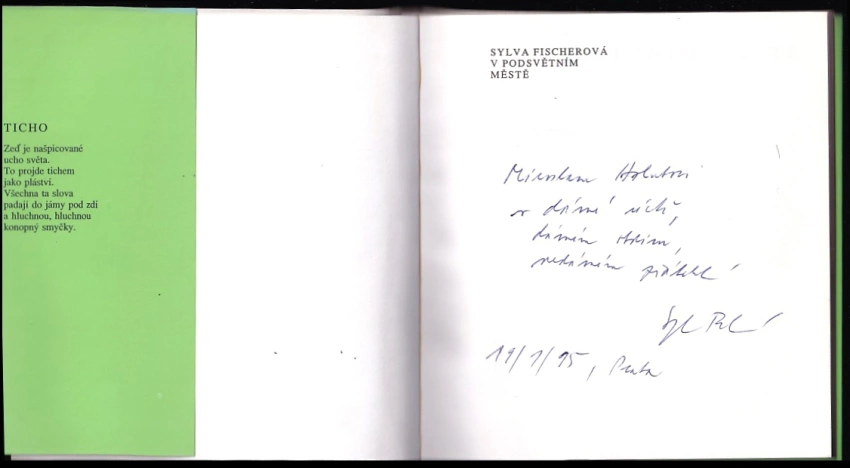 TICHO
Zeď je našpicované
ucho světa.
To projde tichem
jako pláství.
Všechna ta slova
padají do jámy pod zdí
a hluchnou, hluchnou
konopný smyčky.
SYLVA FISCHEROVÁ
V PODSVĚTNÍM
MĚSTĚ
Miroslavu Holubovi
v dávné úctě,
dávném
nedávném přátelství
19/1/95, Praha